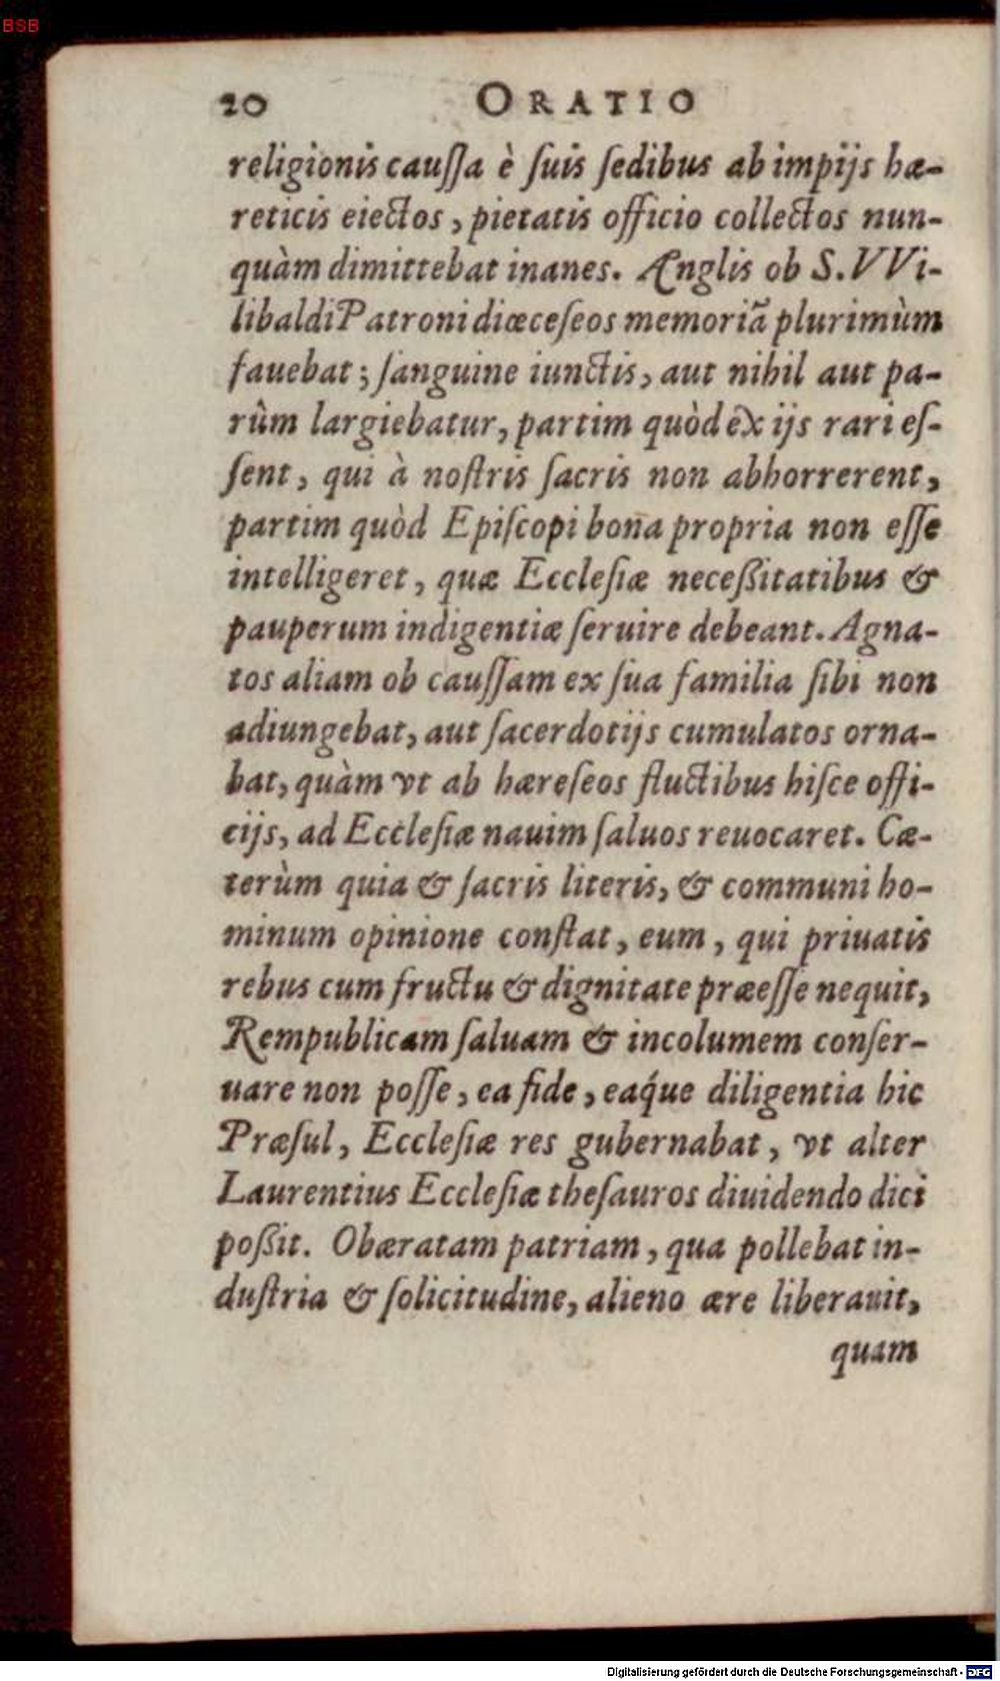 BSB
20 ORATIO
religionis cauſſa è ſuis ſedibus ab impijs hæ-
reticis eiectos, pietatis officio collectos nun-
quàm dimittebat inanes. Ænglis ob S. VVi-
libaldi Patroni diœceſeos memoriã plurimùm
fauebat; ſanguine iunctis, aut nihil aut pa-
rùm largiebatur, partim quòd ex ijs rari eſ-
ſent, qui à noſtris ſacris non abhorrerent,
partim quòd Epiſcopi bona propria non eſſe
intelligeret, quæ Eccleſiæ neceßitatibus &
pauperum indigentiæ ſeruire debeant. Agna-
tos aliam ob cauſſam ex ſua familia ſibi non
adiungebat, aut ſacerdotijs cumulatos orna-
bat, quàm vt ab hæreſeos fluctibus hiſce offi-
cijs, ad Eccleſiæ nauim ſaluos reuocaret. Cæ-
terùm quia & ſacris literis, & communi ho-
minum opinione conſtat, eum, qui priuatis
rebus cum fructu & dignitate præeſſe nequit,
Rempublicam ſaluam & incolumem conſer-
uare non poſſe, ea fide, eaq́ue diligentia hic
Præſul, Eccleſiæ res gubernabat, vt alter
Laurentius Eccleſiæ theſauros diuidendo dici
poßit. Obæratam patriam, qua pollebat in-
duſtria & ſolicitudine, alieno ære liberauit,
quam
Digitalisierung gefördert durch die Deutsche Forschungsgemeinschaft - DFG